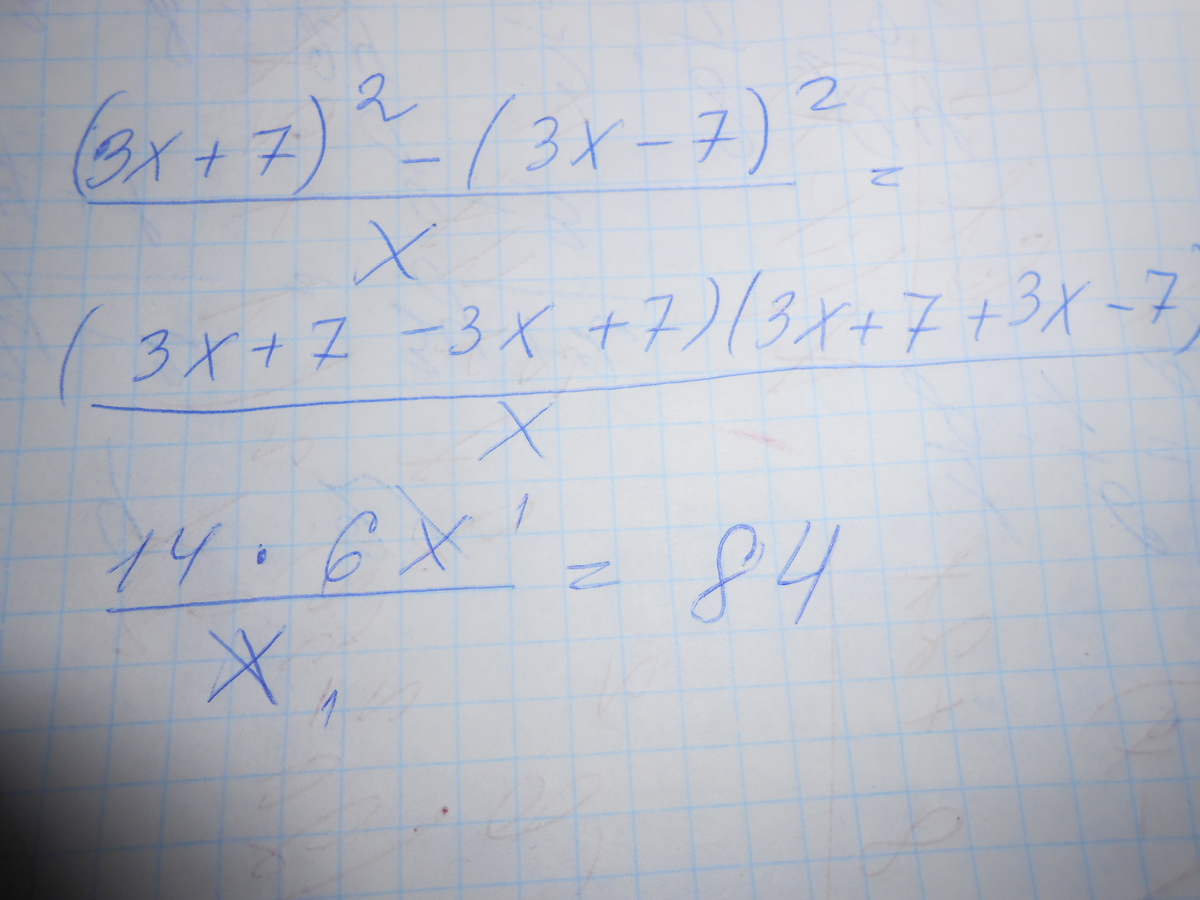 (3x+7)² - (3x-7)² =
x
(3x+7 -3x +7)(3x+7 +3x -7)
x
14 · 6x 1 = 84
x 1